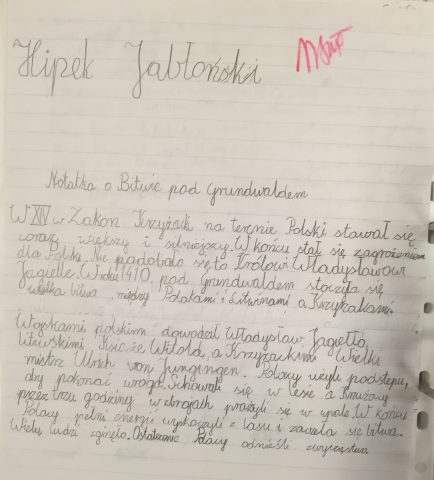 Hipek Jabłoński
Notatka o Bitwie pod Grunwaldem
W XIV w Zakon Krzyżacki na terenie Polski stawał się
coraz większy i silniejszy. W końcu stał się zagrożeniem
dla Polski. Nie podobało się to Królowi Władysławowi
Jagielle. W roku 1410 pod Grunwaldem stoczyła się
wielka bitwa między Polakami i Litwinami a Krzyżakami.
Wojskami polskim dowodził Władysław Jagiełło,
Litewskimi Książe Witold, a Krzyżackimi Wielki
mistrz Ulrich von Jungingen. Polacy użyli podstępu,
aby pokonać wroga. Schowali się w lesie a Krzyżacy
przez trzy godziny w zbrojach prażyli się w upale. W końcu
Polacy pełni energii wyskoczyli z lasu i zaczęła się bitwa.
Wielu ludzi zginęło. Ostatecznie Polacy odnieśli zwycięstwo.